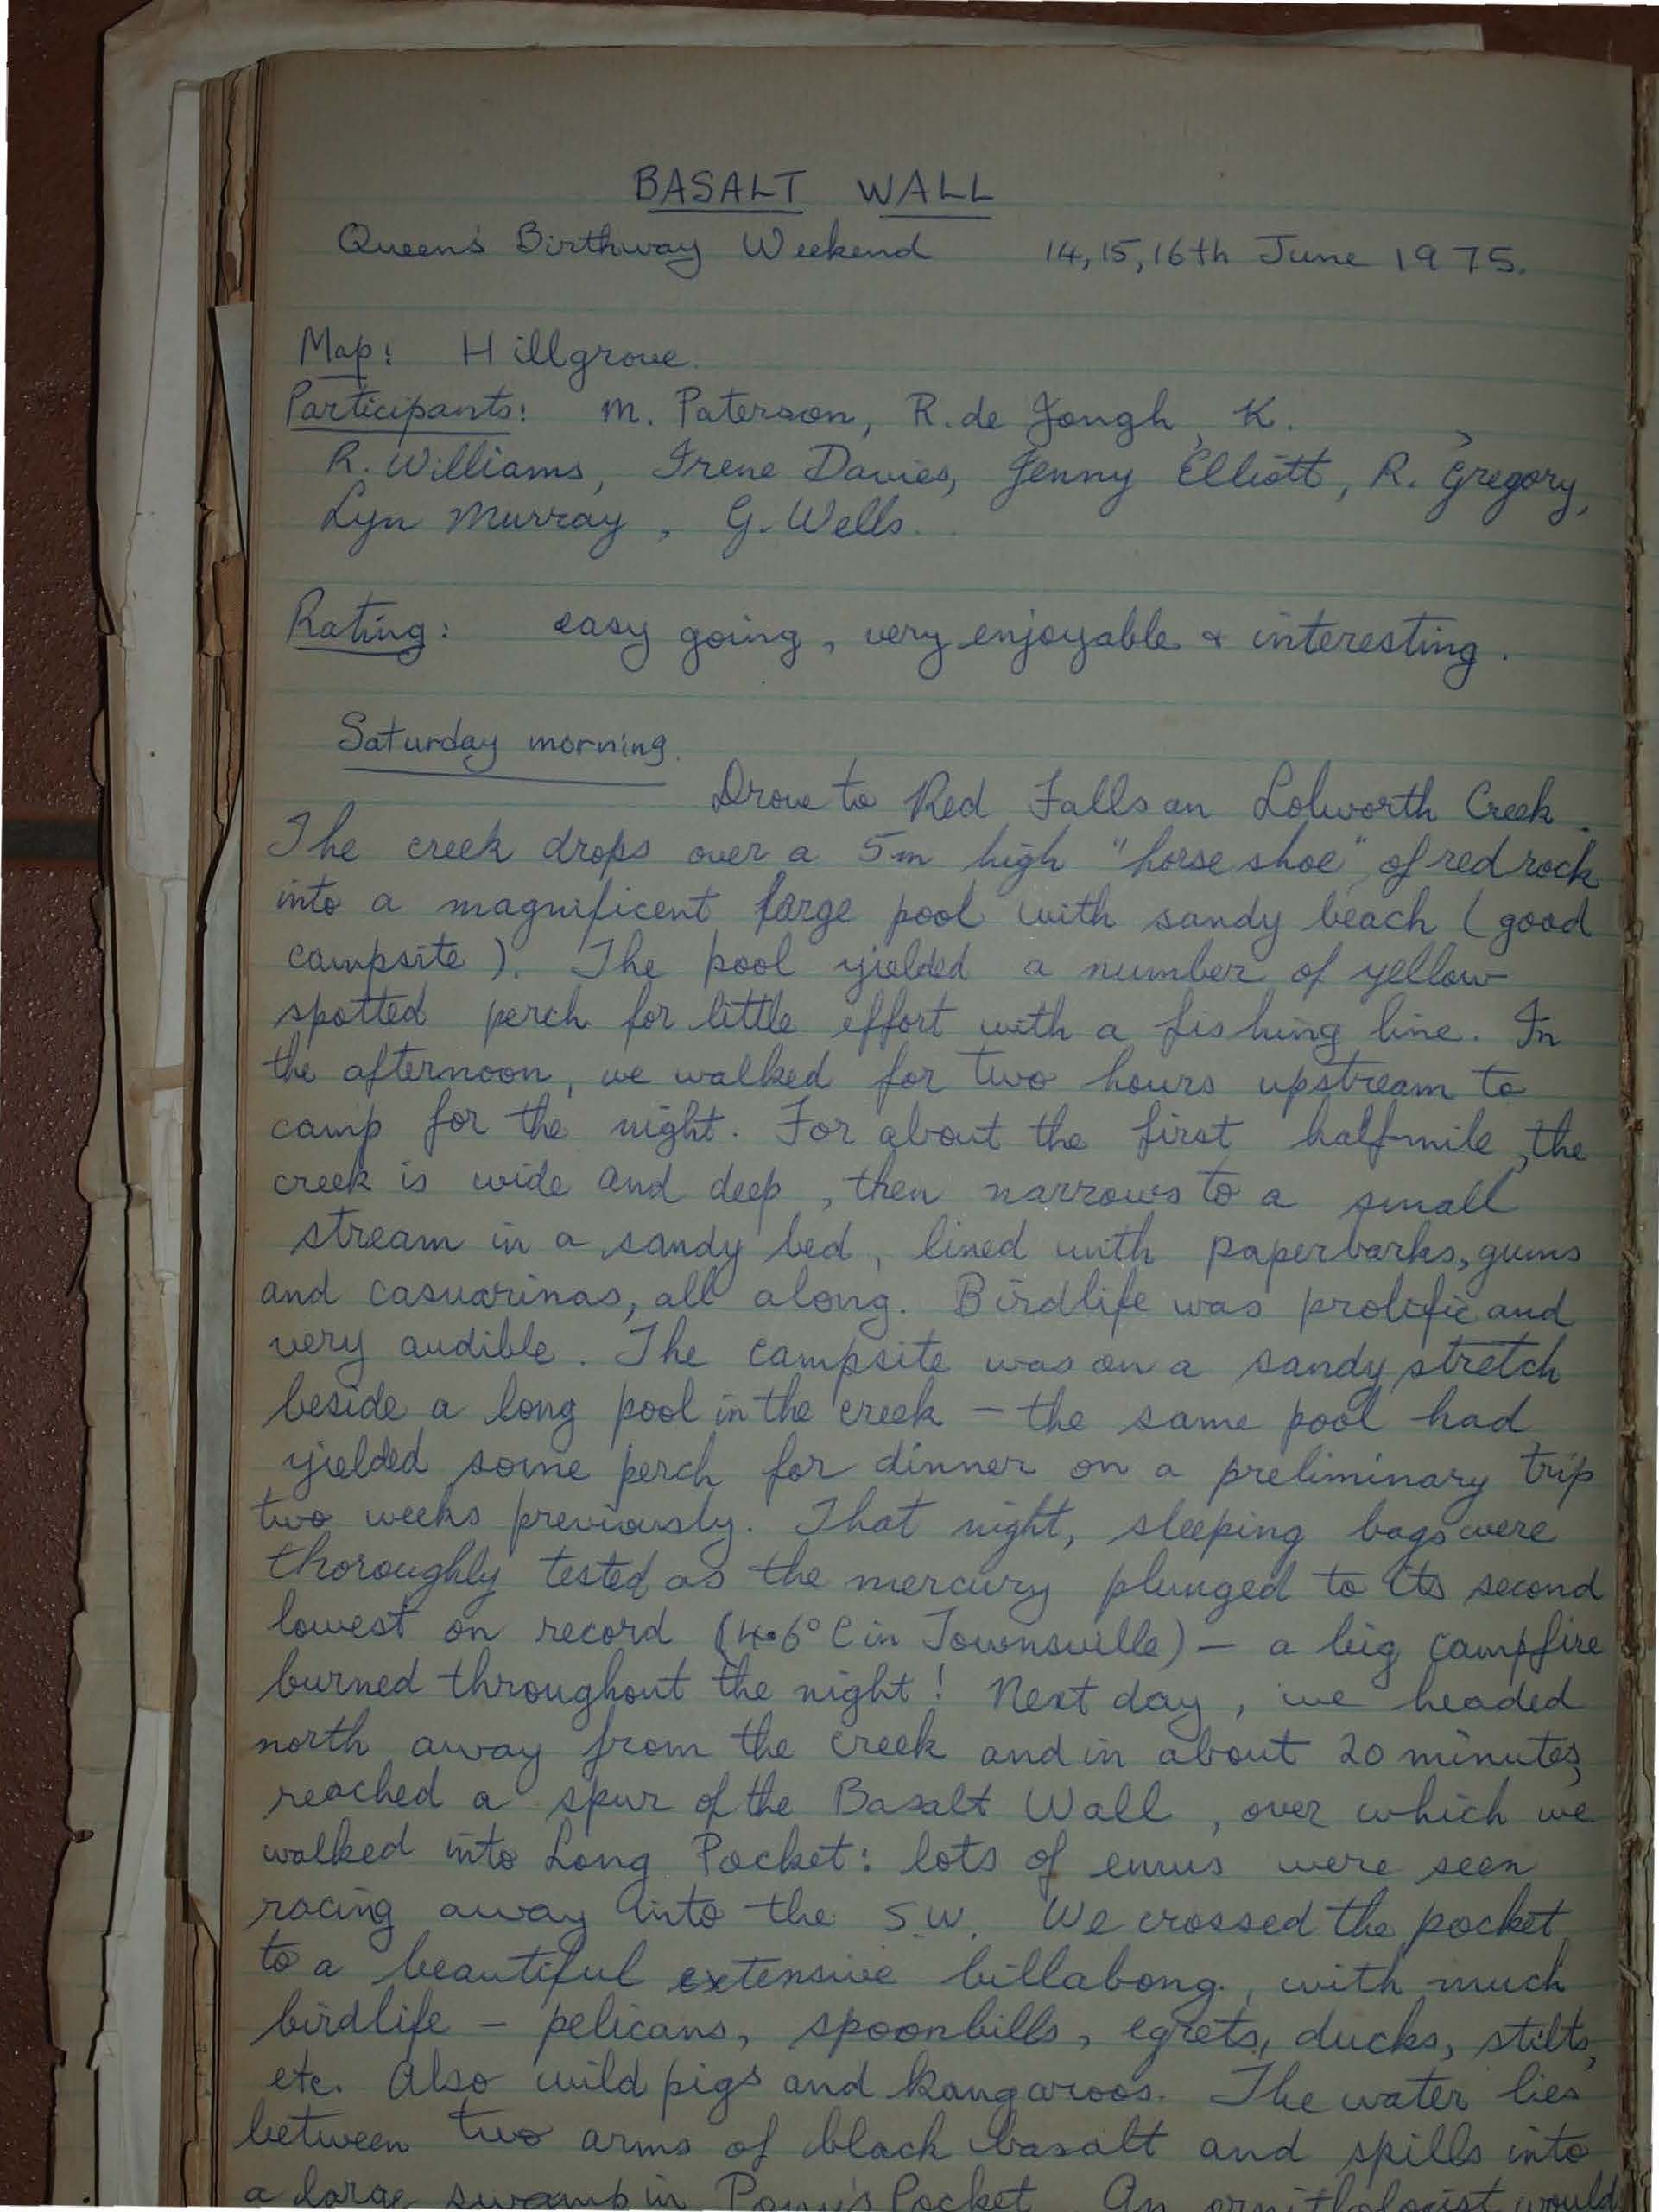 BASALT WALL
Queen's Birthway Weekend 14, 15, 16th June 1975.
Map: Hillgrove.
Participants: M. Paterson, R. de Jongh, K. ,
R. Williams, Irene Davies, Jenny Elliott, R. Gregory,
Lyn Murray, G. Wells.
Rating: easy going, very enjoyable & interesting.
Saturday morning.
Drove to Red Falls on Lolworth Creek.
The creek drops over a 5m high "horse shoe" of red rock
into a magnificent large pool with sandy beach (good
campsite). The pool yielded a number of yellow
spotted perch for little effort with a fishing line. In
the afternoon, we walked for two hours upstream to
camp for the night. For about the first half-mile, the
creek is wide and deep, then narrows to a small
stream in a sandy bed, lined with paperbarks, gums
and casuarinas, all along. Birdlife was prolific and
very audible. The campsite was on a sandy stretch
beside a long pool in the creek - the same pool had
yielded some perch for dinner on a preliminary trip
two weeks previously. That night, sleeping bags were
thoroughly tested as the mercury plunged to its second
lowest on record (4.6°C in Townsville) - a big campfire
burned throughout the night! Next day, we headed
north away from the creek and in about 20 minutes,
reached a spur of the Basalt Wall, over which we
walked into Long Pocket: lots of emus were seen
racing away into the S.W. We crossed the pocket
to a beautiful extensive billabong, with much
birdlife - pelicans, spoonbills, egrets, ducks, stilts,
etc. Also wild pigs and kangaroos. The water lies
between two arms of black basalt and spills into
a large swamp in Pocket. An ornithologist would